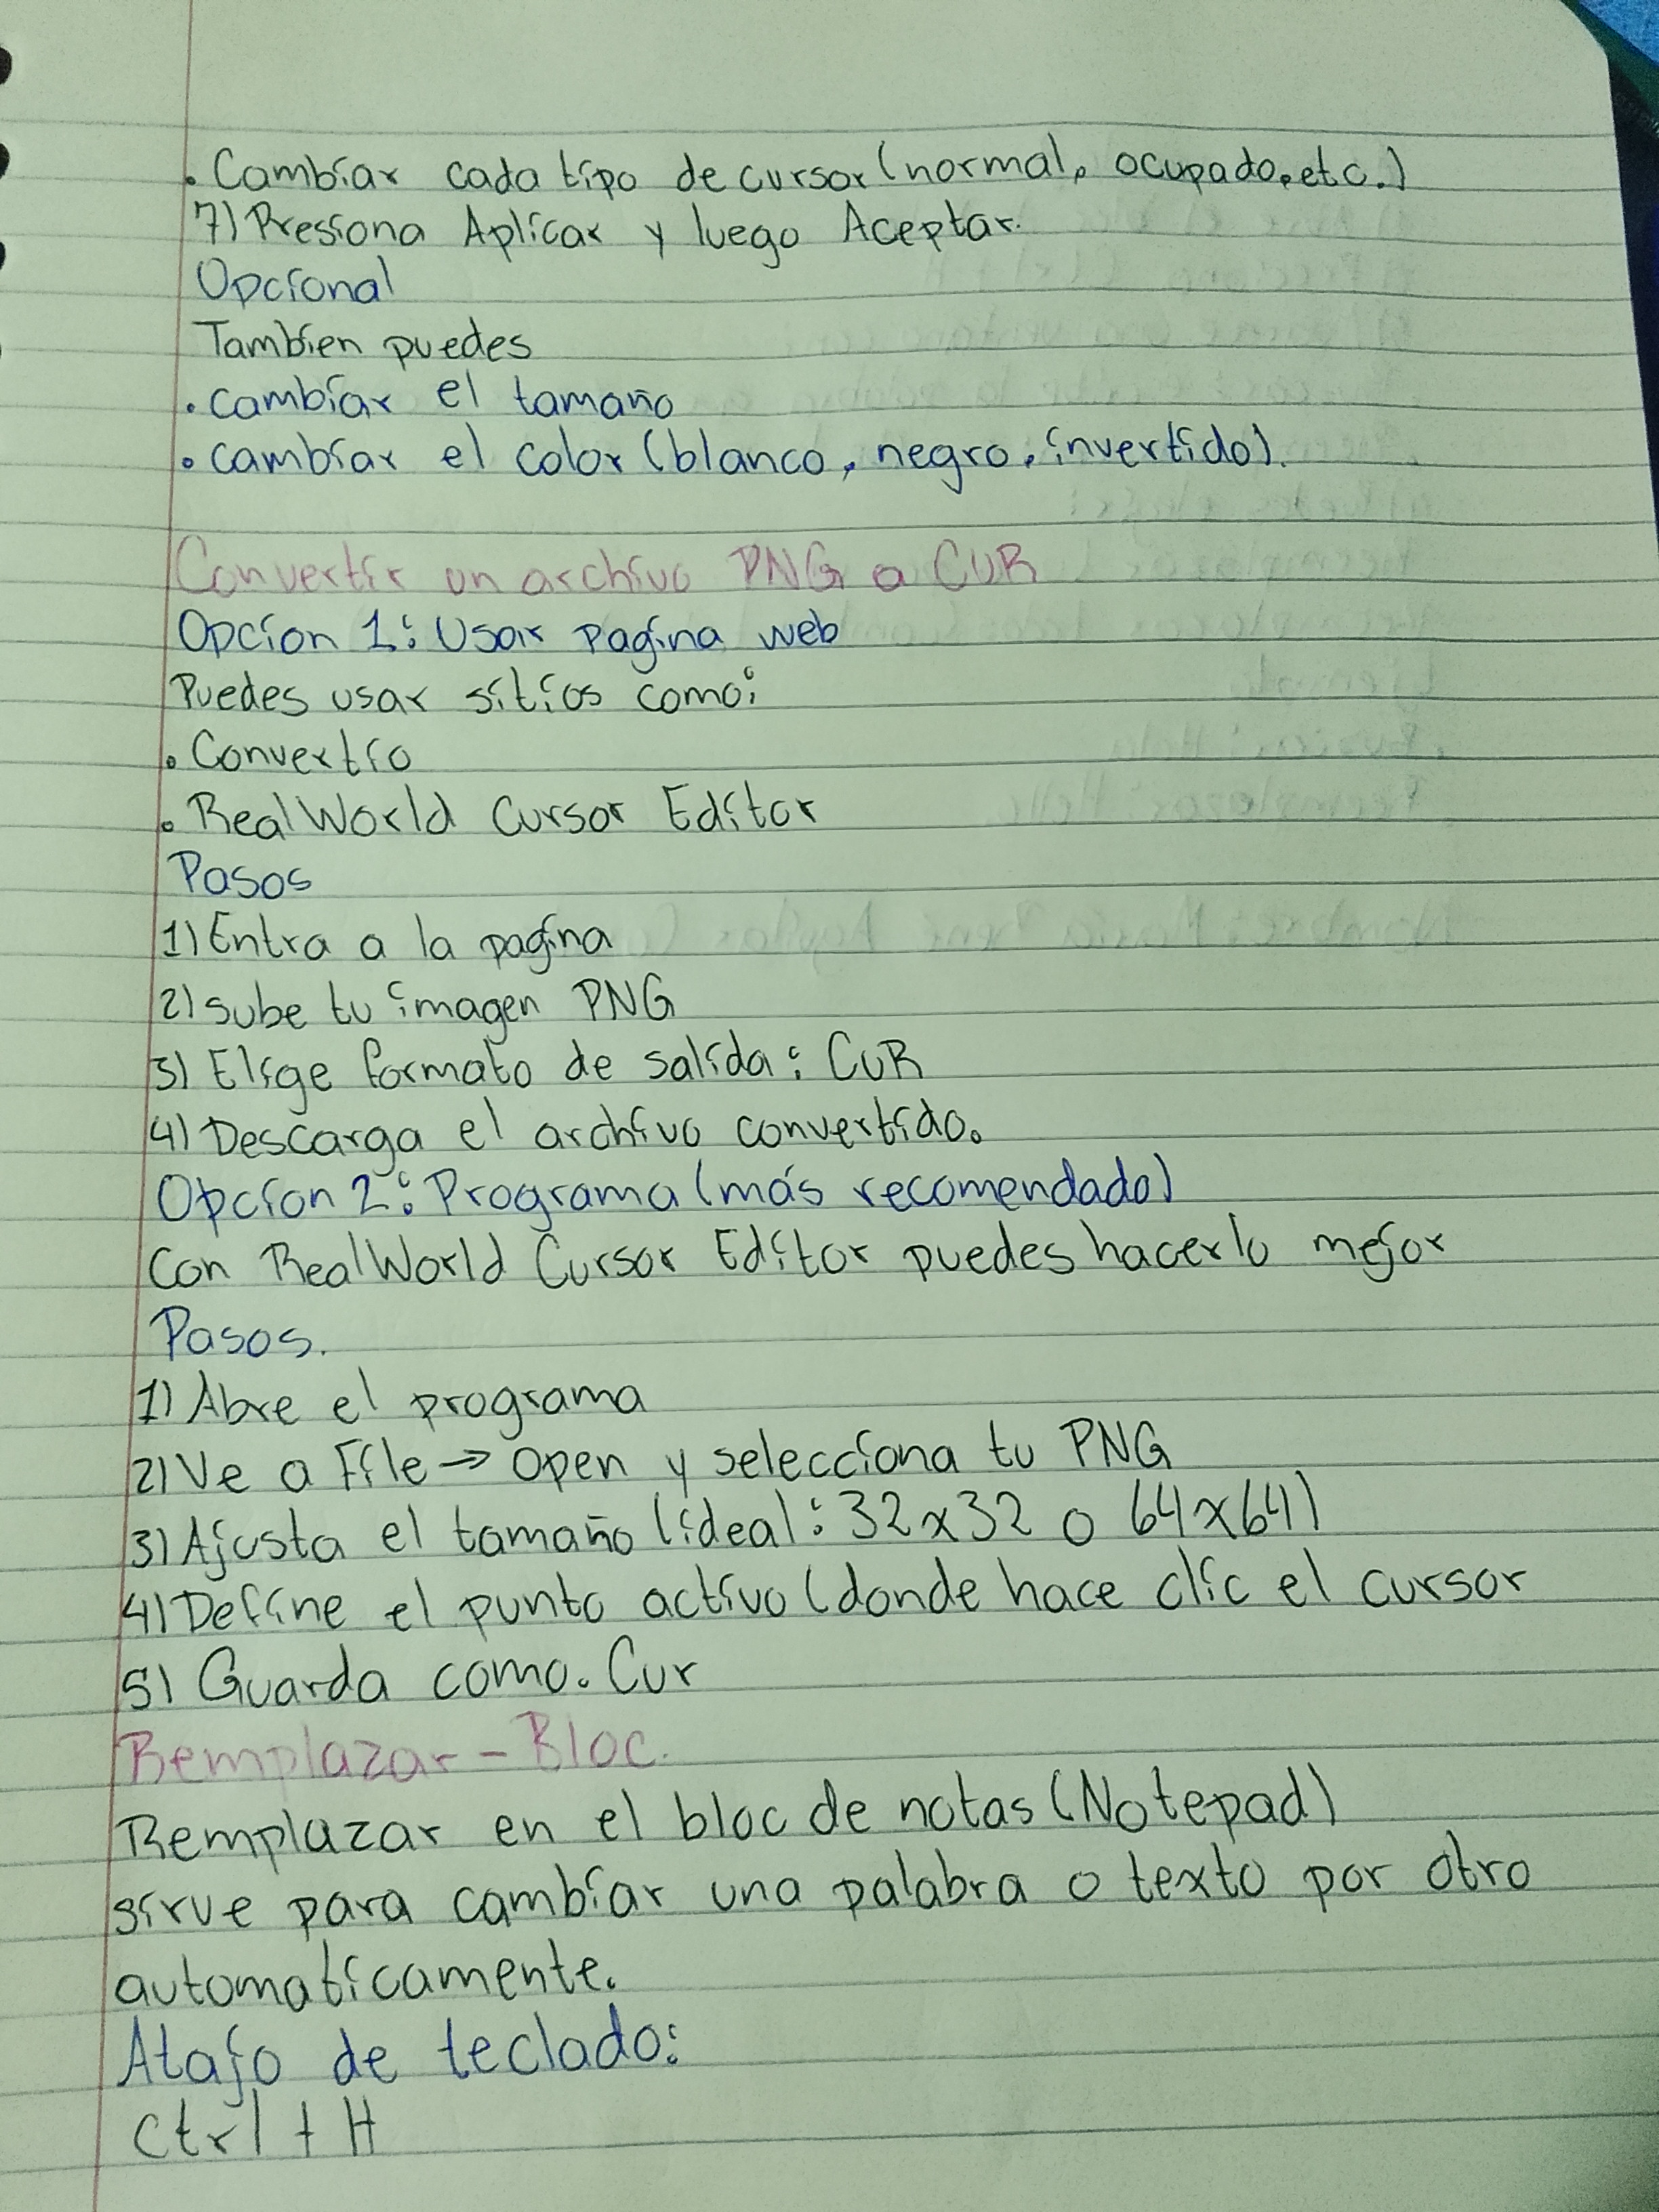 • Cambiar cada tipo de cursor (normal, ocupado, etc.)
7) Presiona Aplicar y luego Aceptar.
Opcional
Tambien puedes
• cambiar el tamaño
• cambiar el color (blanco, negro, invertido).
Convertir un archivo PNG a CUR
Opcion 1: Usar pagina web
Puedes usar sitios como:
• Convertio
• RealWorld Cursor Editor
Pasos
1) Entra a la pagina
2) sube tu imagen PNG
3) Elige formato de salida: CUR
4) Descarga el archivo convertido.
Opcion 2: Programa (más recomendado)
Con RealWorld Cursor Editor puedes hacerlo mejor
Pasos.
1) Abre el programa
2) Ve a File → Open y selecciona tu PNG
3) Ajusta el tamaño (ideal: 32x32 o 64x64)
4) Define el punto activo (donde hace clic el cursor
5) Guarda como. Cur
Remplazar - Bloc.
Remplazar en el bloc de notas (Notepad)
sirve para cambiar una palabra o texto por otro
automaticamente.
Atajo de teclado:
Ctrl + H